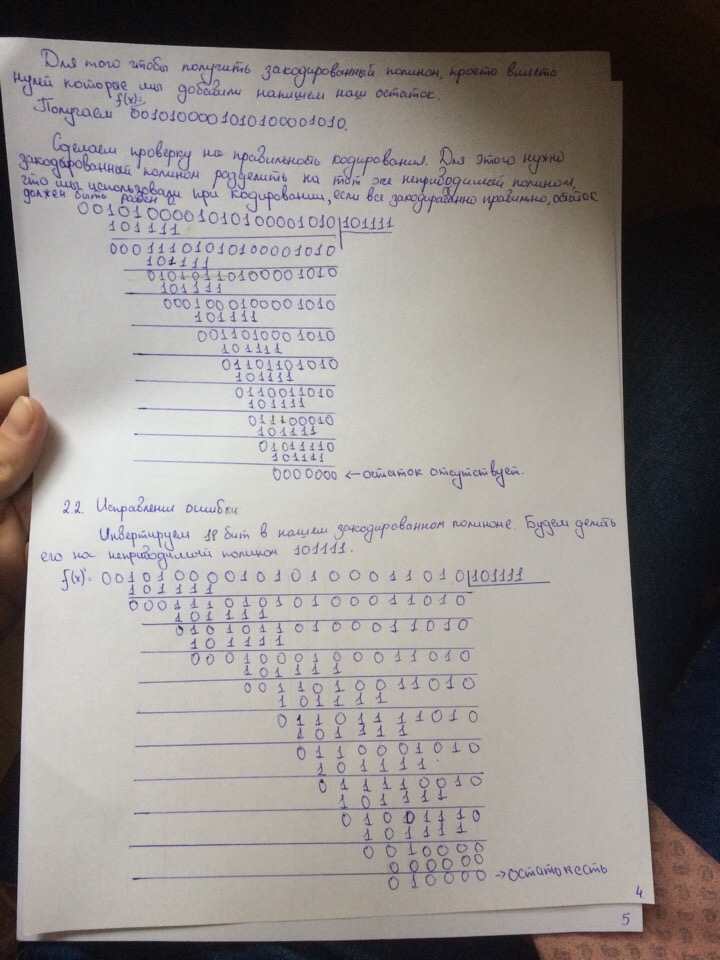 Для того чтобы получить закодированный полином, просто вместо
нулей которые мы добавили напишем наш остаток.
f(x):
Получаем 0010100001010100001010.
Сделаем проверку на правильность кодирования. Для этого нужно
закодированный полином разделить на тот же неприводимый полином,
что мы использовали при кодировании, если все закодированно правильно, остаток
должен быть равен
0010100001010100001010 101111
101111
00011101010100001010
101111
01010110100001010
101111
000100010001010
101111
001101001010
101111
01101101010
101111
0110011010
101111
011100010
101111
01011110
101111
0000000 ← остаток отсутствует.
2.2. Исправление ошибки
Инвертируем 18 бит в нашем закодированном полиноме. Будем делить
его на неприводимый полином 101111.
f(x): 0010100001010100011010 101111
101111
00011101010100011010
101111
01010110100011010
101111
0001000100011010
101111
0011010011010
101111
01101111010
101111
0110001010
101111
011110010
101111
01001110
101111
0010000
000000
010000 → остаток есть
4
5